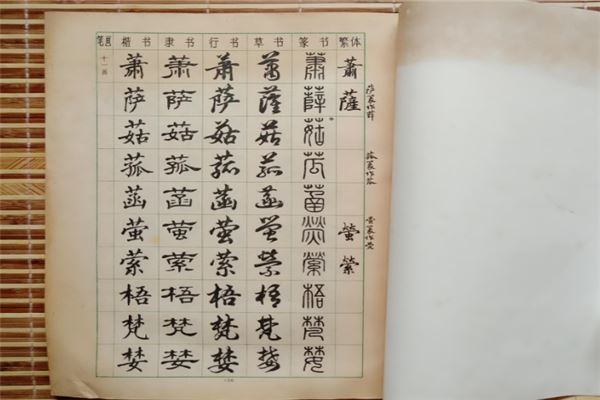 笔画 楷书 隶书 行书 草书 篆书 繁体
十一画 萧 萧 萧 萧 萧 蕭
萨 萨 萨 萨 薩 薩
菇 菇 菇 菇 菇
菰 菰 菰 菰 苽
菡 菡 菡 菡 菡
萤 萤 萤 萤 熒 螢
萦 萦 萦 萦 縈 縈
梧 梧 梧 梧 梧
梵 梵 梵 梵 梵
婪 婪 婪 婪 婪
萨篆作薛
菰篆作苽